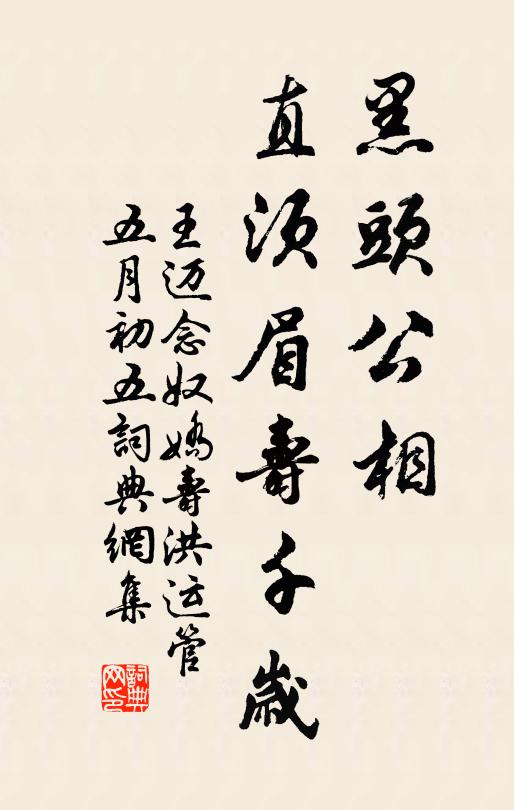 黑頭公相
直須眉壽千歲
王迈念奴嬌壽洪运管
五月初五詞典網集
詞典网印